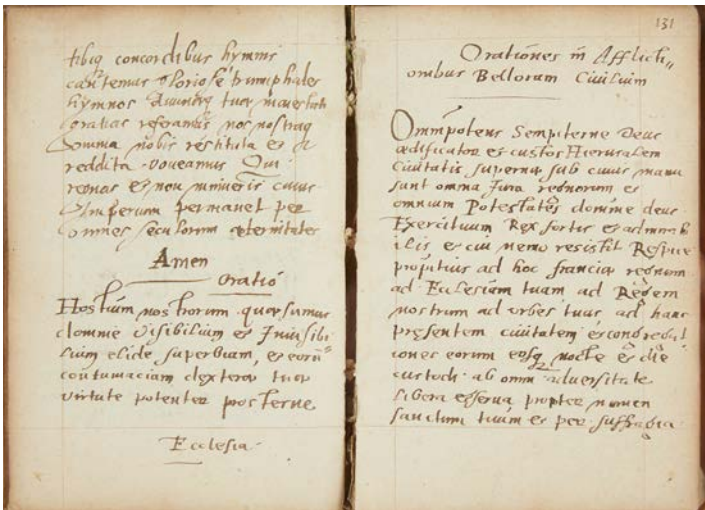 tibiq concordibus hymnis
cantemus Gloriose triumphales
hymnos tuae maiestati
gratias referamus nos nostraq
omnia nobis restituta et
reddita voveamus Qui
regnas et non cuius
Imperium permanet per
omnes seculorum aeternitates
Amen
Oratió
Hostium nostrorum quaesumus
domine visibilium et Invisibi
lium elide superbiam, et eorū
contumaciam dexterae tuae
virtute potenter prosterne
Ecclesia
131
Orationes in Afflicti,,
onibus Bellorum Ciuilium
Omnipotens Sempiterne Deus
aedificator et custos Hierusalem
Ciuitatis supernae sub cuius manu
sunt omnia Jura regnorum et
omnium Potestates domine deus
Exercituum Rex fortis et admirab
ilis et cui nemo resistit Respice
propitius ad hoc franciae regnum
ad Ecclesiam tuam ad Regem
nostrum ad urbes tuas ad hanc
presentem ciuitatem et congregat
iones eorum eosq nocte et die
custodi ab omni aduersitate
libera et serua propter nomen
sanctum tuum et per suffragia